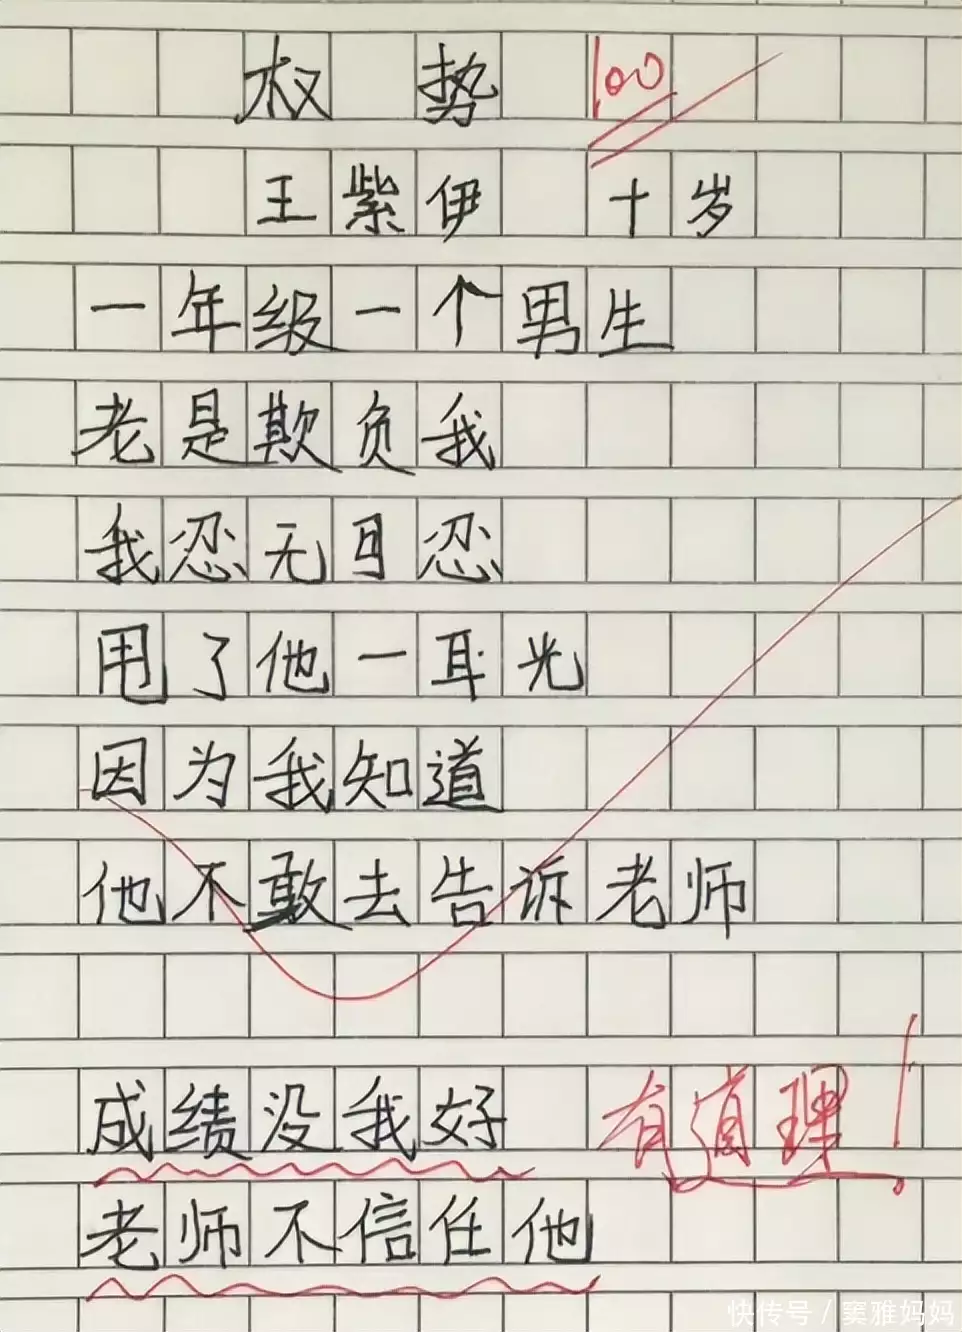 权势 100
王紫伊 十岁
一年级一个男生
老是欺负我
我忍无可忍
甩了他一耳光
因为我知道
他不敢去告诉老师
成绩没我好 有道理！
老师不信任他
快传号／窦雅妈妈